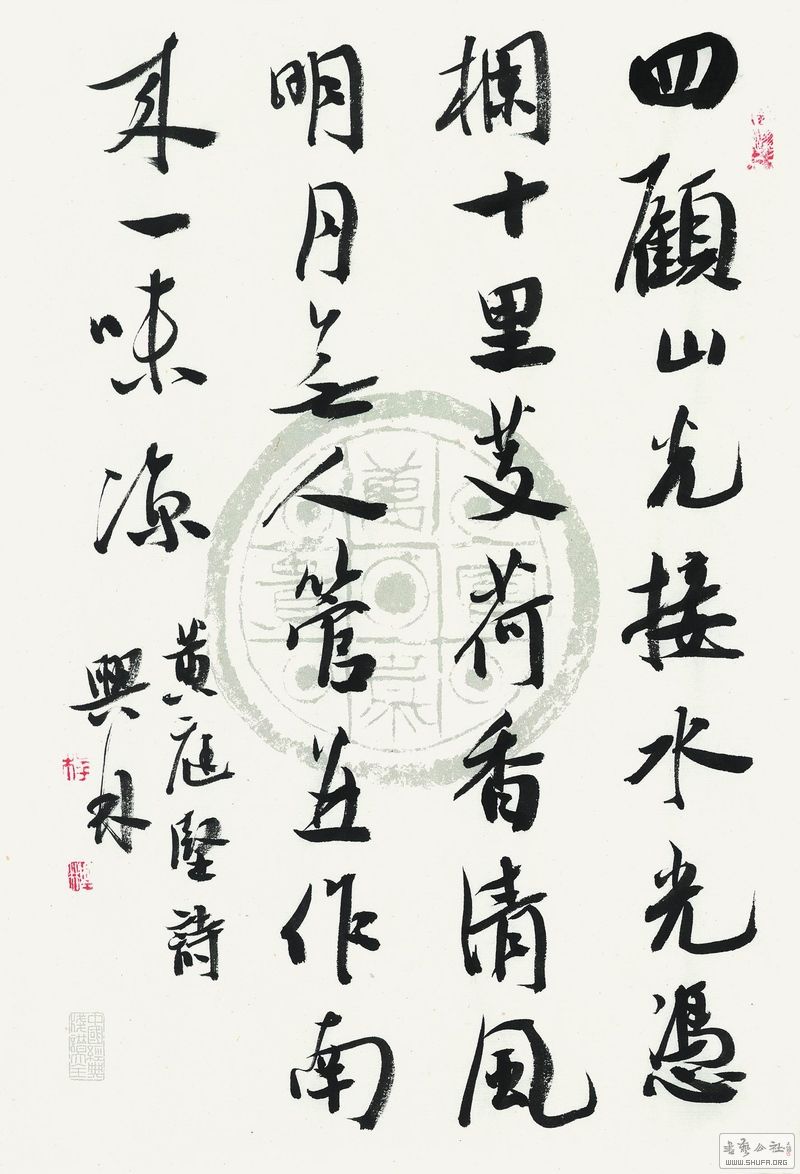 四顧山光接水光憑
欄十里芰荷香清風
明月無人管並作南
來一味涼
黄庭堅詩
興林
書藝公社
WWW.SHUFA.ORG